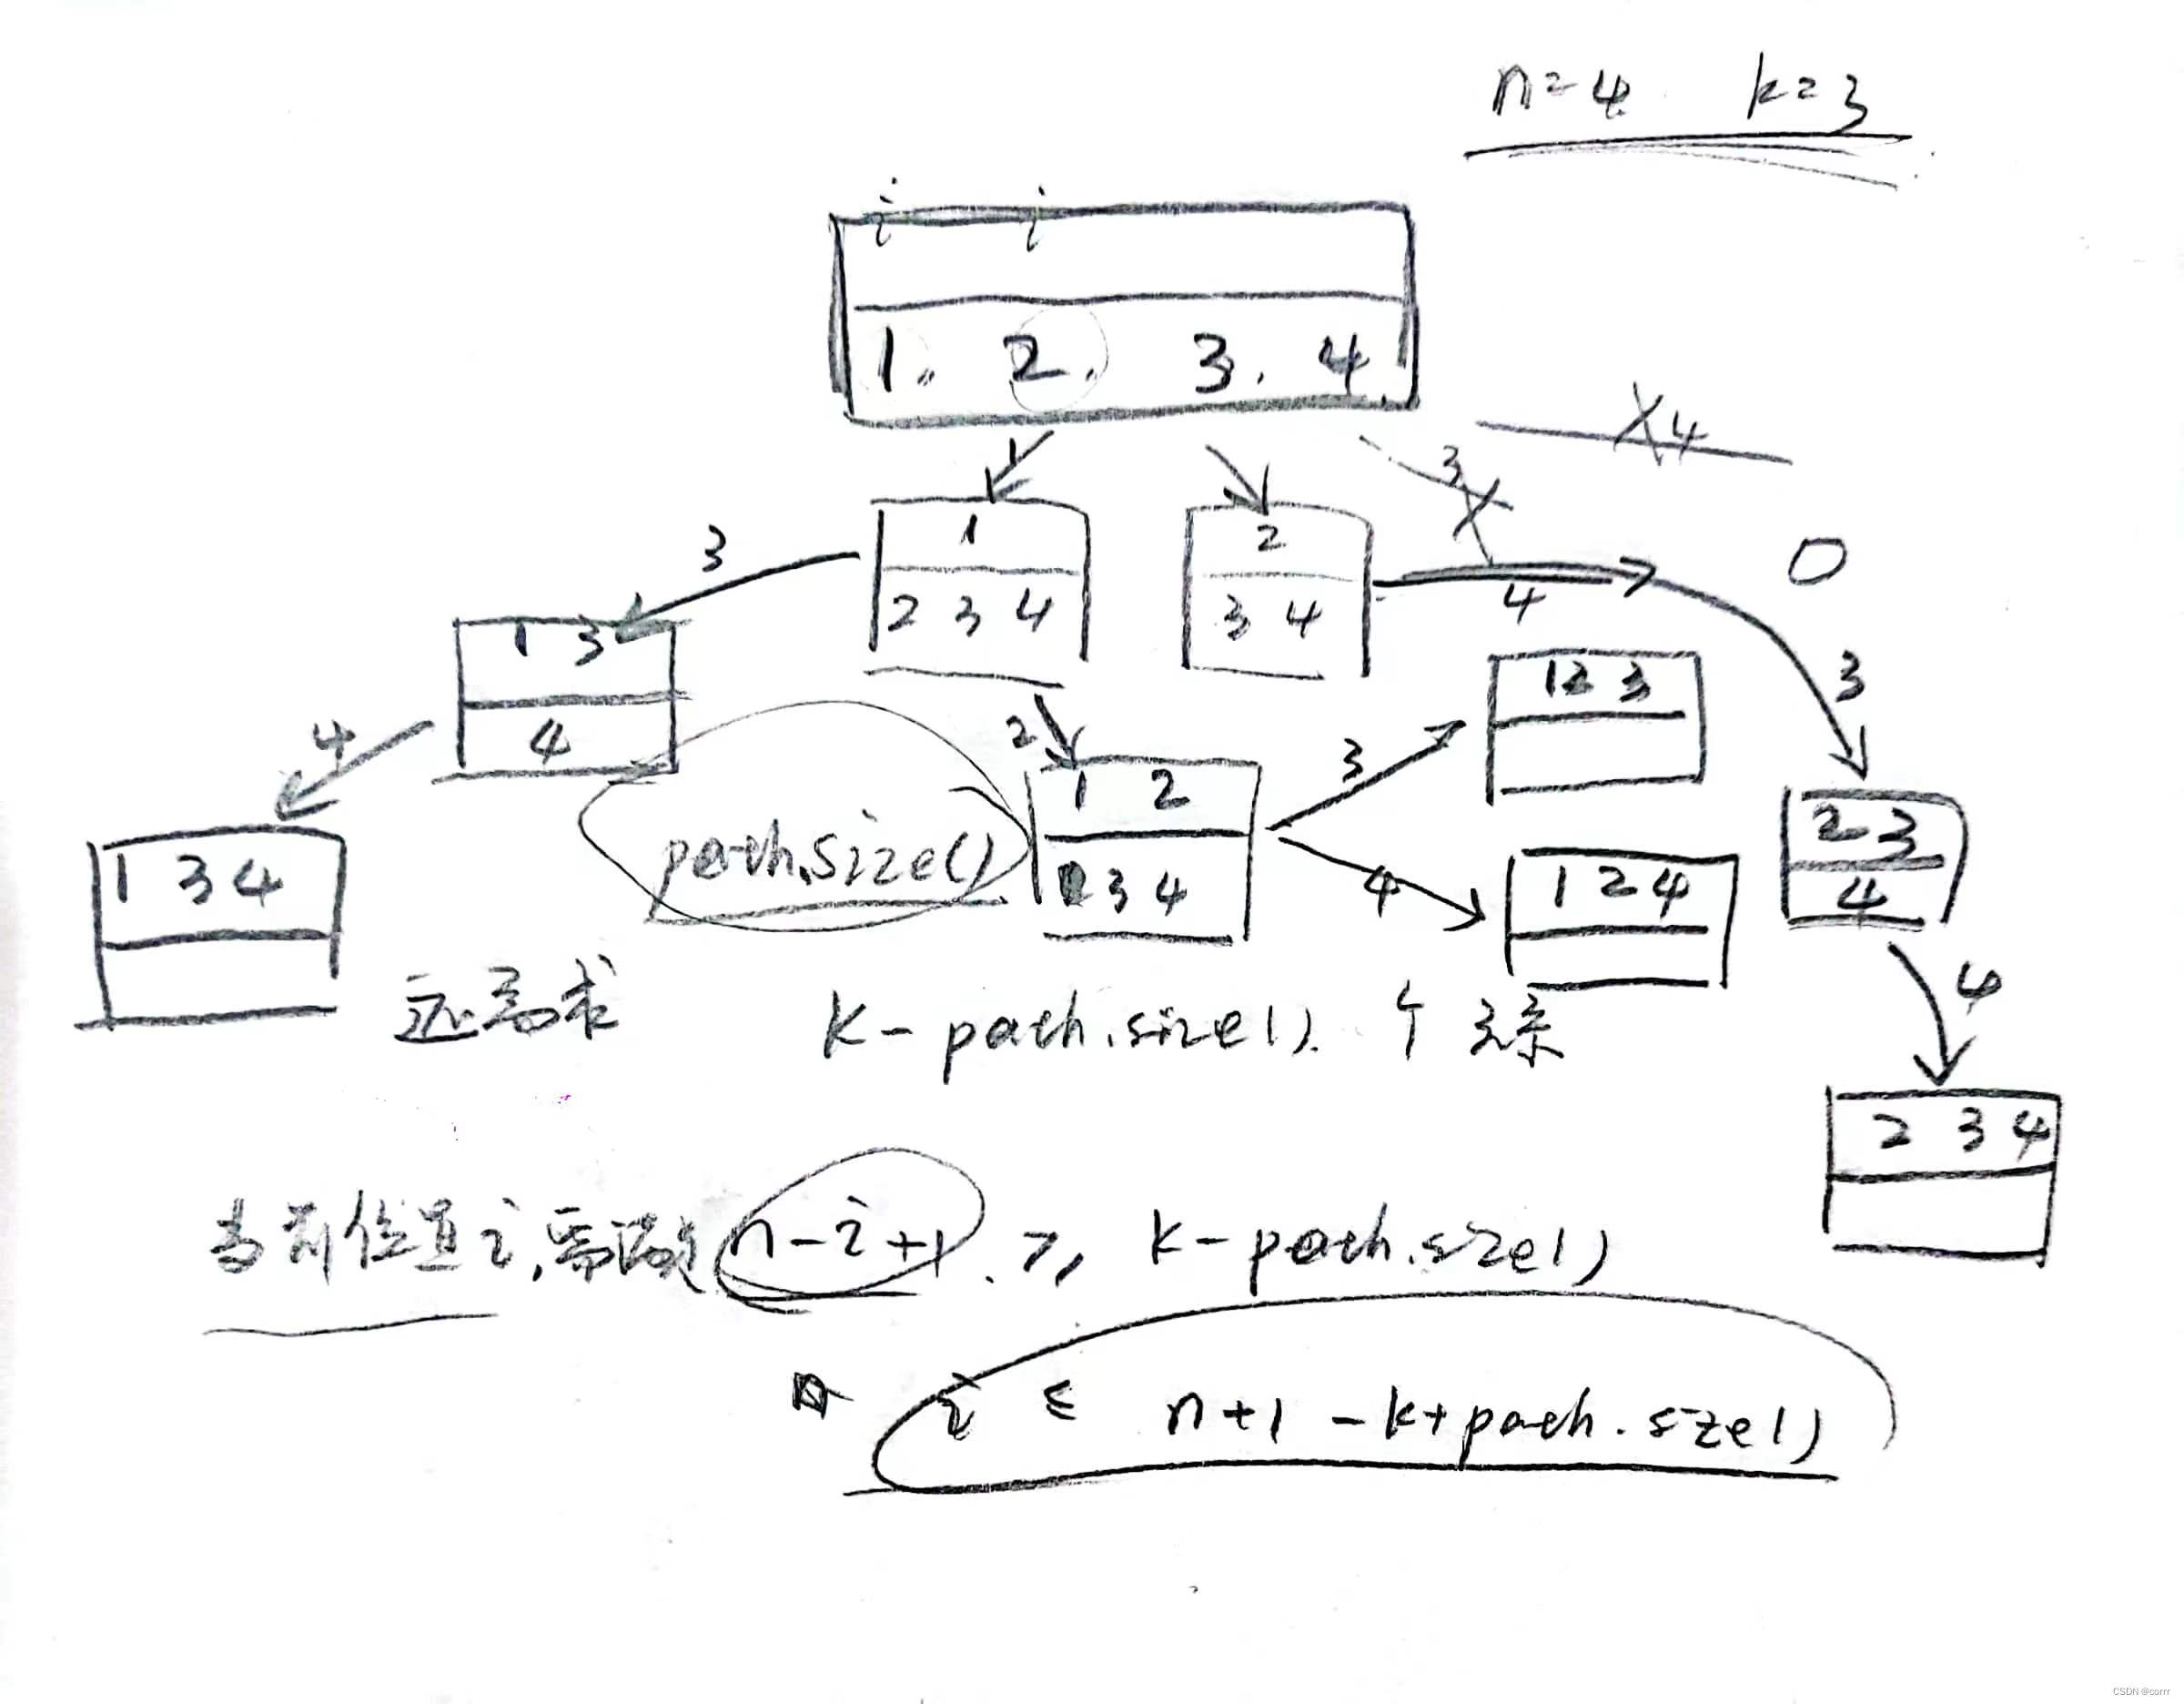 n=4 k=3
i i
1. 2. 3. 4
1
3
X4
1
2 3 4
2
3 4
4
3
3
1 3
4
4
1 3 4
2
1 2
3 4
path.size()
3
1 2 3
4
1 2 4
2 3
4
4
2 3 4
还需求 k-path.size() 个元素
当前位置i, n-i+1 ≥ k-path.size()
i ≤ n+1-k+path.size()
CSDN @corrr